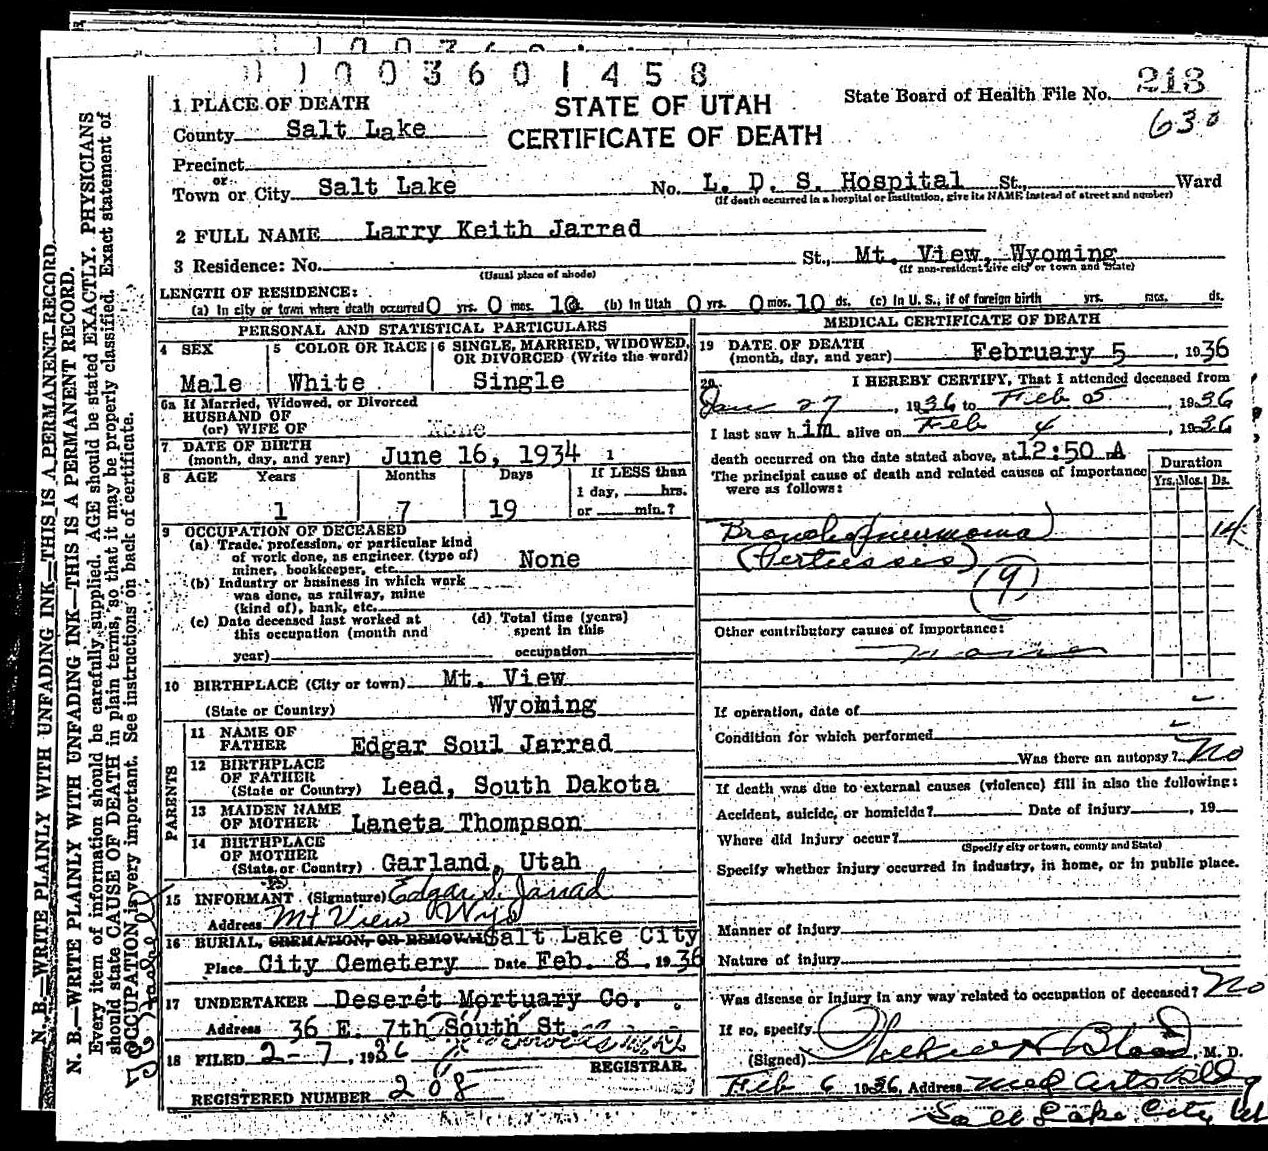 1003601458
1 PLACE OF DEATH
STATE OF UTAH
CERTIFICATE OF DEATH
State Board of Health File No. 213
630
County Salt Lake
Precinct
or
Town or City Salt Lake No. L. D. S. Hospital St., Ward
(If death occurred in a hospital or institution, give its NAME instead of street and number)
2 FULL NAME Larry Keith Jarrad
3 Residence: No. St., Mt. View, Wyoming
(Usual place of abode) (If non-resident give city or town and State)
LENGTH OF RESIDENCE:
(a) In city or town where death occurred 0 yrs. 0 mos. 10 (b) In Utah 0 yrs. 0 mos. 10 ds. (c) In U. S., if of foreign birth yrs. mos. ds.
PERSONAL AND STATISTICAL PARTICULARS
4 SEX 5 COLOR OR RACE 6 SINGLE, MARRIED, WIDOWED, OR DIVORCED (Write the word)
Male White Single
6a If Married, Widowed, or Divorced
HUSBAND OF
(or) WIFE OF None
7 DATE OF BIRTH
(month, day, and year) June 16, 1934
8 AGE Years Months Days If LESS than
1 day, hrs.
1 7 19 or min.?
9 OCCUPATION OF DECEASED
(a) Trade, profession, or particular kind
of work done, as engineer (type of)
miner, bookkeeper, etc. None
(b) Industry or business in which work
was done, as railway, mine
(kind of), bank, etc.
(c) Date deceased last worked at (d) Total time (years)
this occupation (month and spent in this
year) occupation
10 BIRTHPLACE (City or town) Mt. View
(State or Country) Wyoming
PARENTS
11 NAME OF
FATHER Edgar Soul Jarrad
12 BIRTHPLACE
OF FATHER
(State or Country) Lead, South Dakota
13 MAIDEN NAME
OF MOTHER Laneta Thompson
14 BIRTHPLACE
OF MOTHER
(State or Country) Garland, Utah
15 INFORMANT (Signature) Edgar S. Jarrad
Address Mt View Wyo
16 BURIAL, CREMATION, OR REMOVAL Salt Lake City
Place City Cemetery Date Feb. 8, 1936
17 UNDERTAKER Deseret Mortuary Co.
Address 36 E. 7th South St.
18 FILED 2-7, 1936
REGISTRAR.
REGISTERED NUMBER 208
MEDICAL CERTIFICATE OF DEATH
19 DATE OF DEATH
(month, day, and year) February 5, 1936
20 I HEREBY CERTIFY, That I attended deceased from
Jan 27, 1936 to Feb 5, 1936
I last saw him alive on Feb 4, 1936
death occurred on the date stated above, at 12:50 A
The principal cause of death and related causes of importance
were as follows:
Duration
Yrs. Mos. Ds.
Bronchopneumonia 14
(Pertussis)
(9)
Other contributory causes of importance:
none
If operation, date of -
Condition for which performed -
Was there an autopsy? No
If death was due to external causes (violence) fill in also the following:
Accident, suicide, or homicide? Date of injury , 19
Where did injury occur?
(Specify city or town, county and State)
Specify whether injury occurred in industry, in home, or in public place.
Manner of injury
Nature of injury
Was disease or injury in any way related to occupation of deceased? No
If so, specify
(Signed) M. D.
Feb 6 1936, Address Med Arts Bldg
Salt Lake City, Ut
N. B.—WRITE PLAINLY WITH UNFADING INK—THIS IS A PERMANENT RECORD
N. B.—WRITE PLAINLY WITH UNFADING INK—THIS IS A PERMANENT RECORD.
Every item of information should be carefully supplied. AGE should be stated EXACTLY. PHYSICIANS
should state CAUSE OF DEATH in plain terms, so that it may be properly classified. Exact statement of
OCCUPATION is very important. See instructions on back of certificate.